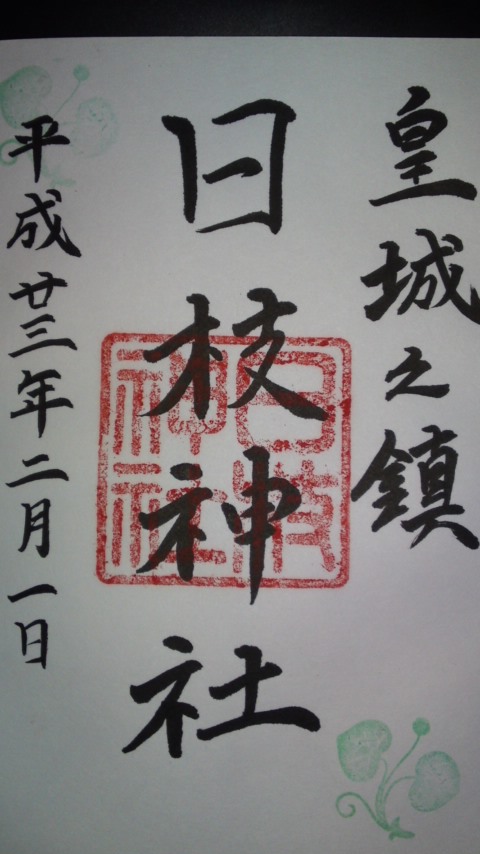 皇城之鎮
日枝神社
日枝神社
平成廿三年二月一日